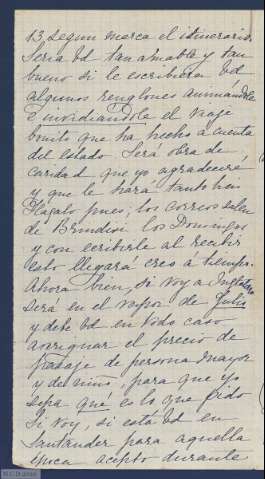 13 segun marca el itinerario.
Seria Vd tan amable y tan
bueno si le escribiera Vd
algunos renglones animandole
é invidiandole el viaje
bonito que ha hecho á cuenta
del Estado. Será obra de
caridad que yo agradeceré
y que le hará tanto bien
Hágalo pues, los correos salen
de Brindisi los Domingos
y con escribirle al recibir
esto llegará creo á tiempo.
Ahora bien, si voy a Inglaterra
será en el vapor de Julio
y debe Vd en todo caso
averiguar el precio de
pasaje de persona mayor
y de niño, para que yo
sepa qué es lo que pido
Si voy, si está Vd en
Santander para aquella
época acepto durante